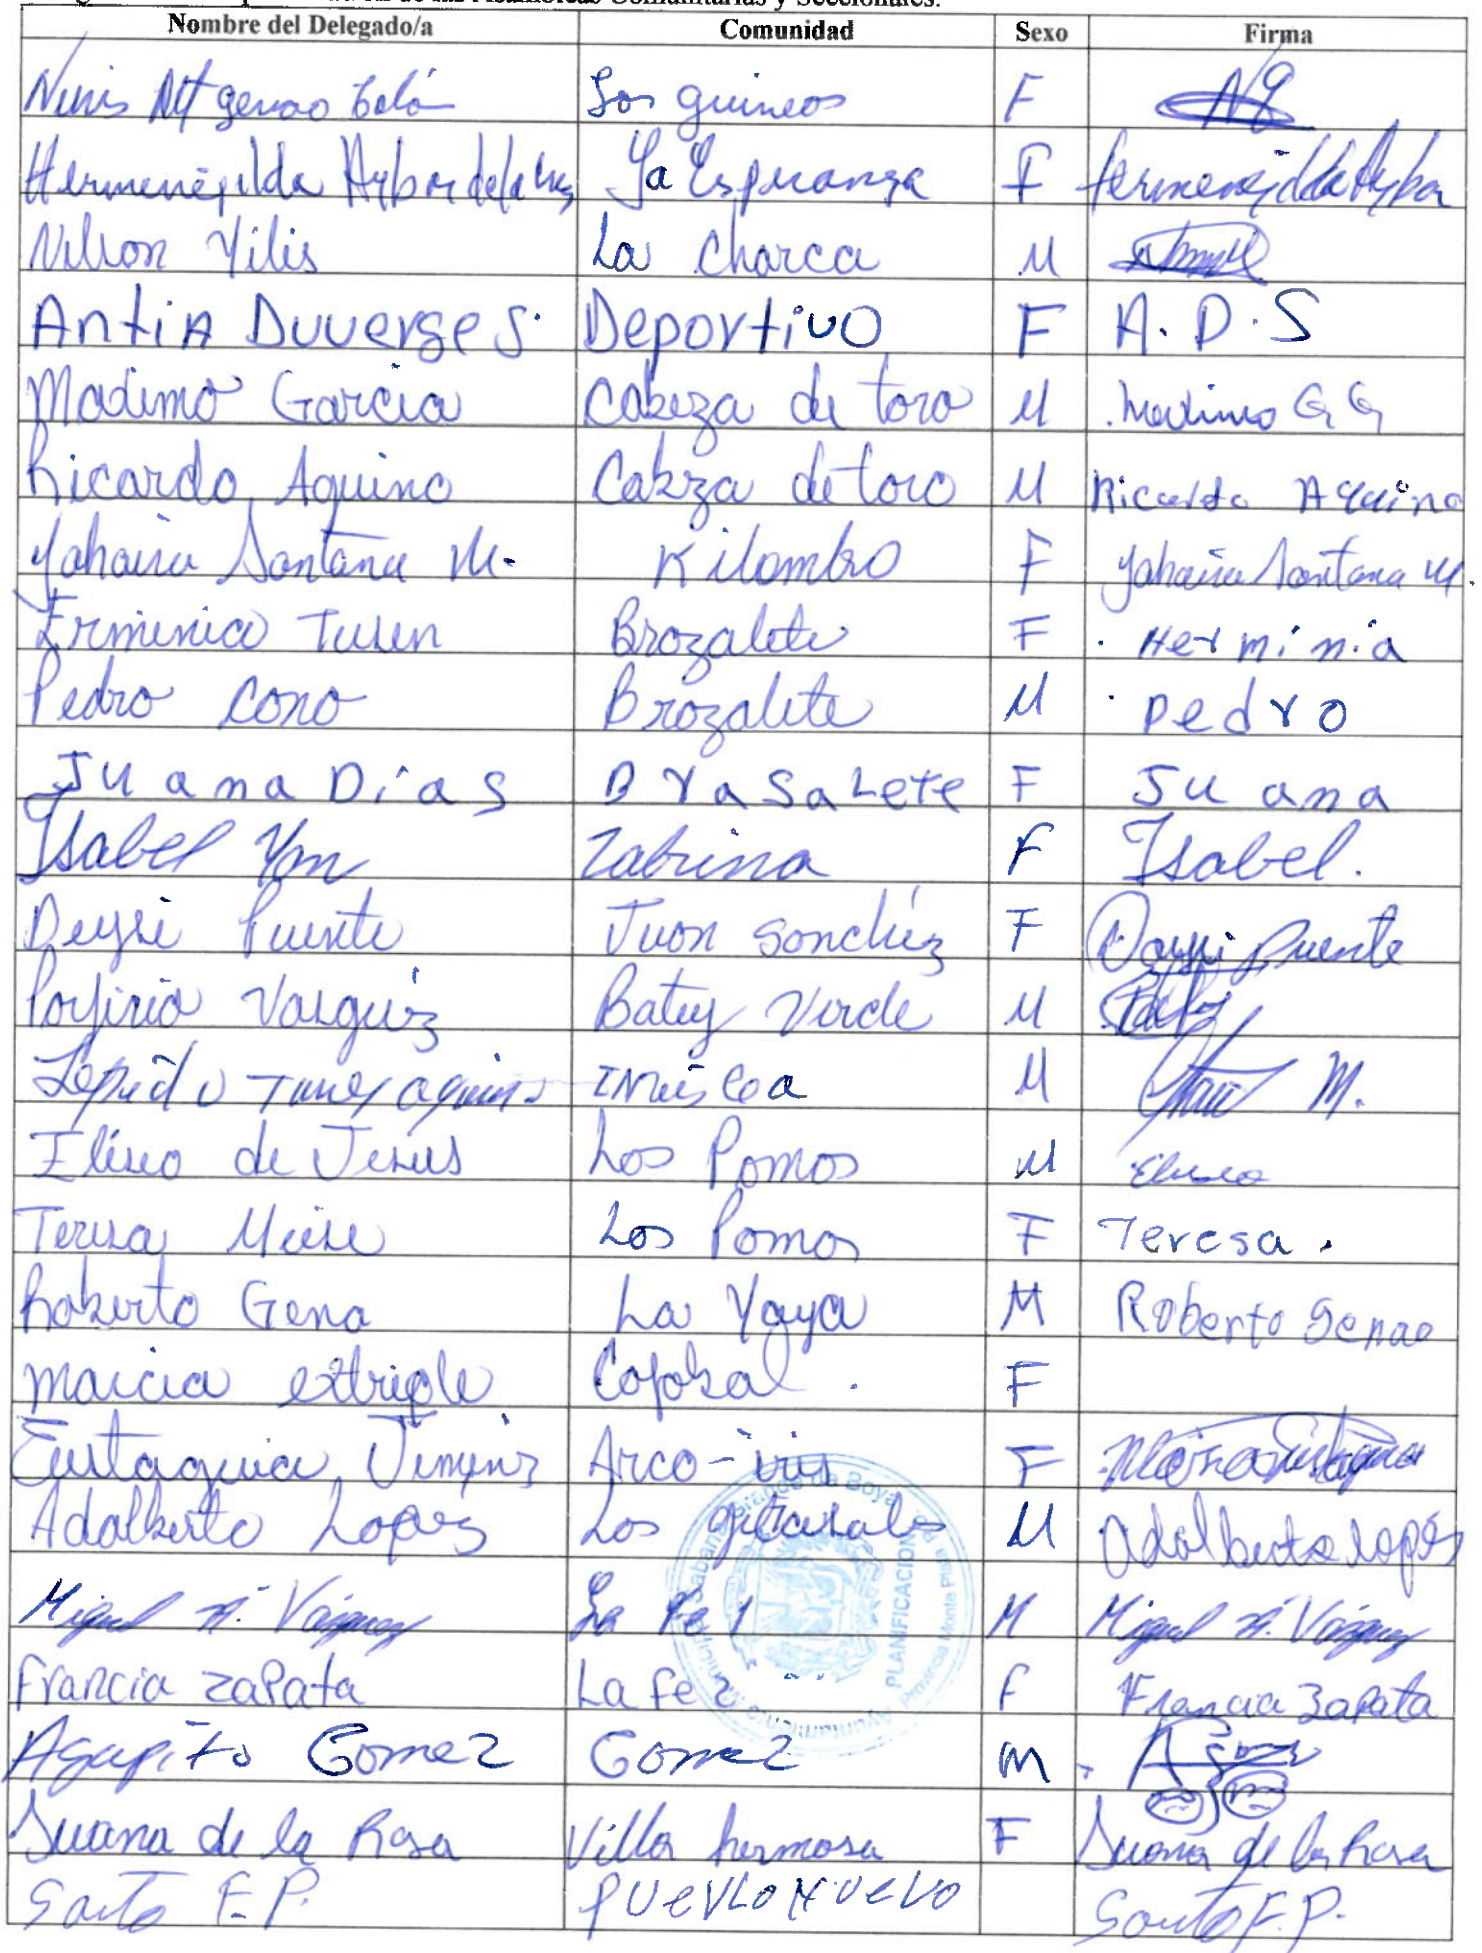 Asambleas Comunitarias y Seccionales.
Nombre del Delegado/a Comunidad Sexo Firma
Niris Alt genao Los guineos F NG
Hermenegilda Aybar de la La Esperanza F Hermenegilda Aybar
Nilson Yilis La Charca M
Antia Duverge S. Deportivo F A. D. S
Madimo Garcia Cabeza de toro M Maximo G G
Ricardo Aquino Cabeza de toro M Ricardo Aquino
Yahaira Santana M. Kilombo F Yahaira Santana M.
Erminica Tusen Brozalete F Herminia
Pedro Cono Brozalete M Pedro
Juana Dias Brasalete F Juana
Isabel Yan Zabrina F Isabel.
Deysi Puente Juan Sanchez F Daysi Puente
Porfirio Vasquez Batey Verde M
M M.
Eliseo de Jesus Los Pomos M Eliseo
Teresa Los Pomos F Teresa.
Roberto Gena La Yaya M Roberto Genao
Marcia extriple Cojobal. F
Eustaquia Jimenez Arco-iris F
Adalberto Lopez Los M Adalberto Lopez
Miguel A. Vásquez La Fe 1 M Miguel A. Vásquez
Francia Zapata La Fe 2 F Francia Zapata
Agapito Gomez Gomez M
Juana de la Rosa Villa hermosa F Juana de la Rosa
Santo F.P. Puevlo Nuevo Santo F.P.
Ayuntamiento Municipal Sabana Grande de Boyá Provincia Monte Plata
PLANIFICACION